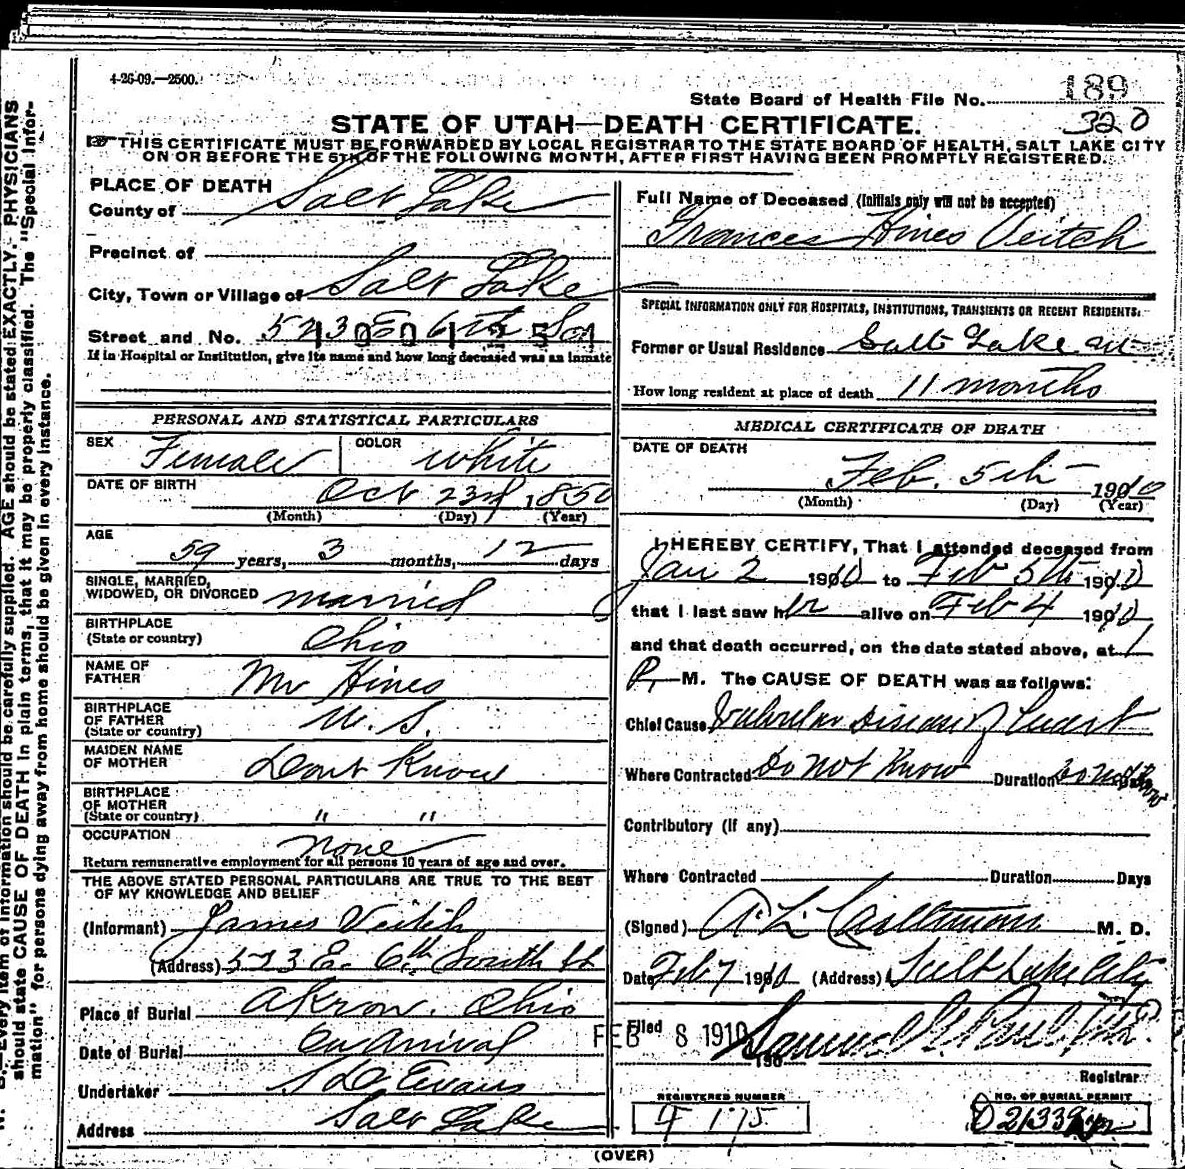 4-26-09.—2500.
State Board of Health File No. 189
320
STATE OF UTAH—DEATH CERTIFICATE.
THIS CERTIFICATE MUST BE FORWARDED BY LOCAL REGISTRAR TO THE STATE BOARD OF HEALTH, SALT LAKE CITY
ON OR BEFORE THE 5TH OF THE FOLLOWING MONTH, AFTER FIRST HAVING BEEN PROMPTLY REGISTERED.
PLACE OF DEATH
County of Salt Lake
Precinct of
City, Town or Village of Salt Lake
Street and No. 523 E 6th So
If in Hospital or Institution, give its name and how long deceased was an inmate
PERSONAL AND STATISTICAL PARTICULARS
SEX Female COLOR White
DATE OF BIRTH Oct 23rd 1850
(Month) (Day) (Year)
AGE
59 years, 3 months, 12 days
SINGLE, MARRIED,
WIDOWED, OR DIVORCED married
BIRTHPLACE
(State or country) Ohio
NAME OF
FATHER Mr Hines
BIRTHPLACE
OF FATHER U. S.
(State or country)
MAIDEN NAME
OF MOTHER Dont Know
BIRTHPLACE
OF MOTHER
(State or country) " "
OCCUPATION none
Return remunerative employment for all persons 10 years of age and over.
THE ABOVE STATED PERSONAL PARTICULARS ARE TRUE TO THE BEST
OF MY KNOWLEDGE AND BELIEF
(Informant) James Veitch
(Address) 523 E. 6th South St
Place of Burial Akron, Ohio
Date of Burial On Arrival
Undertaker S D Evans
Address Salt Lake
Full Name of Deceased (Initials only will not be accepted)
Frances Hines Veitch
SPECIAL INFORMATION ONLY FOR HOSPITALS, INSTITUTIONS, TRANSIENTS OR RECENT RESIDENTS.
Former or Usual Residence Salt Lake
How long resident at place of death 11 months
MEDICAL CERTIFICATE OF DEATH
DATE OF DEATH
Feb. 5th 1910
(Month) (Day) (Year)
I HEREBY CERTIFY, That I attended deceased from
Jan 2 1910 to Feb 5th 1910
that I last saw her alive on Feb 4 1910
and that death occurred, on the date stated above, at 1
P. M. The CAUSE OF DEATH was as follows:
Chief Cause Valvular Disease of Heart
Where Contracted Do Not Know Duration Do not Know
Contributory (if any)
Where Contracted Duration Days
(Signed) M. D.
Date Feb 7 1910 (Address) Salt Lake City
Filed FEB 8 1910 Samuel G. Paul
190
Registrar
REGISTERED NUMBER
F 175
NO. OF BURIAL PERMIT
D 21339
(OVER)
N. B.—Every item of information should be carefully supplied. AGE should be stated EXACTLY. PHYSICIANS
should state CAUSE OF DEATH in plain terms, that it may be properly classified. The "Special Infor-
mation" for persons dying away from home should be given in every instance.